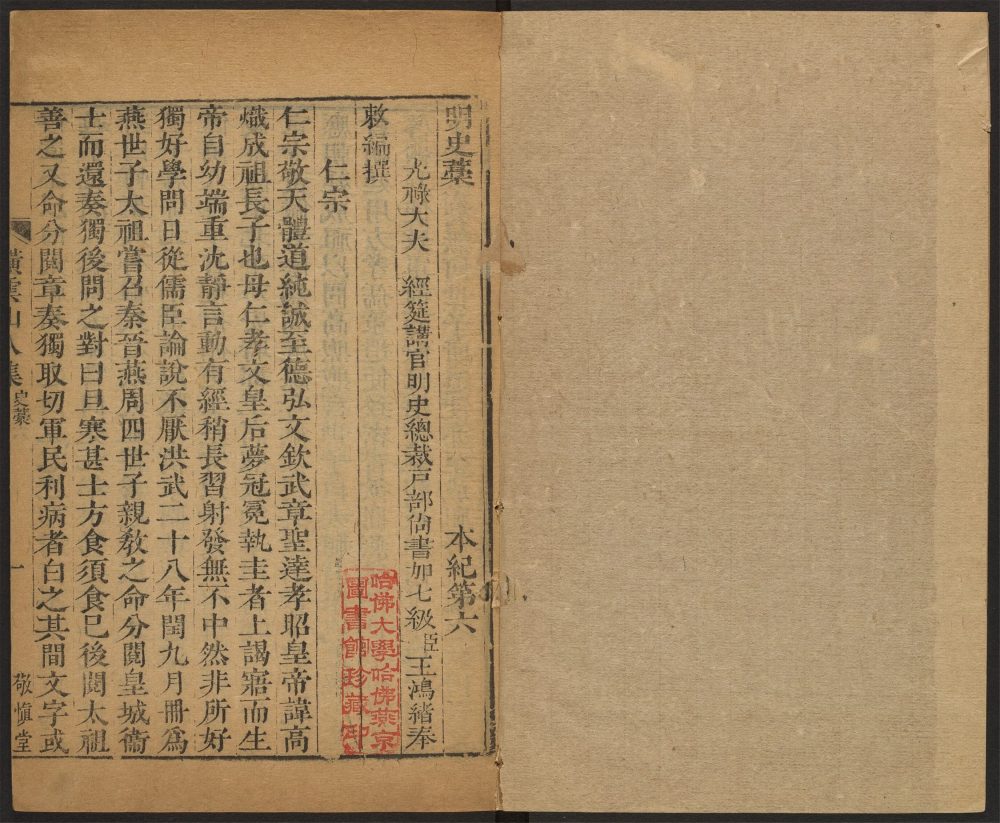 明史藁 本紀第六
光祿大夫 經筵講官明史總裁戶部尙書加七級臣王鴻緖奉
敕編撰
仁宗
仁宗敬天體道純誠至德弘文欽武章聖達孝昭皇帝諱高
熾成祖長子也母仁孝文皇后夢冠冕執圭者上謁寤而生
帝自幼端重沈靜言動有經稍長習射發無不中然非所好
獨好學問日從儒臣論說不厭洪武二十八年閏九月冊爲
燕世子太祖嘗召秦晉燕周四世子親敎之命分閱皇城衞
士而還奏獨後問之對曰旦寒甚士方食須食已後閱太祖
善之又命分閱章奏獨取切軍民利病者白之其間文字或
橫雲山人集 史藁 一 敬愼堂
哈佛大學哈佛燕京
圖書館珍藏印